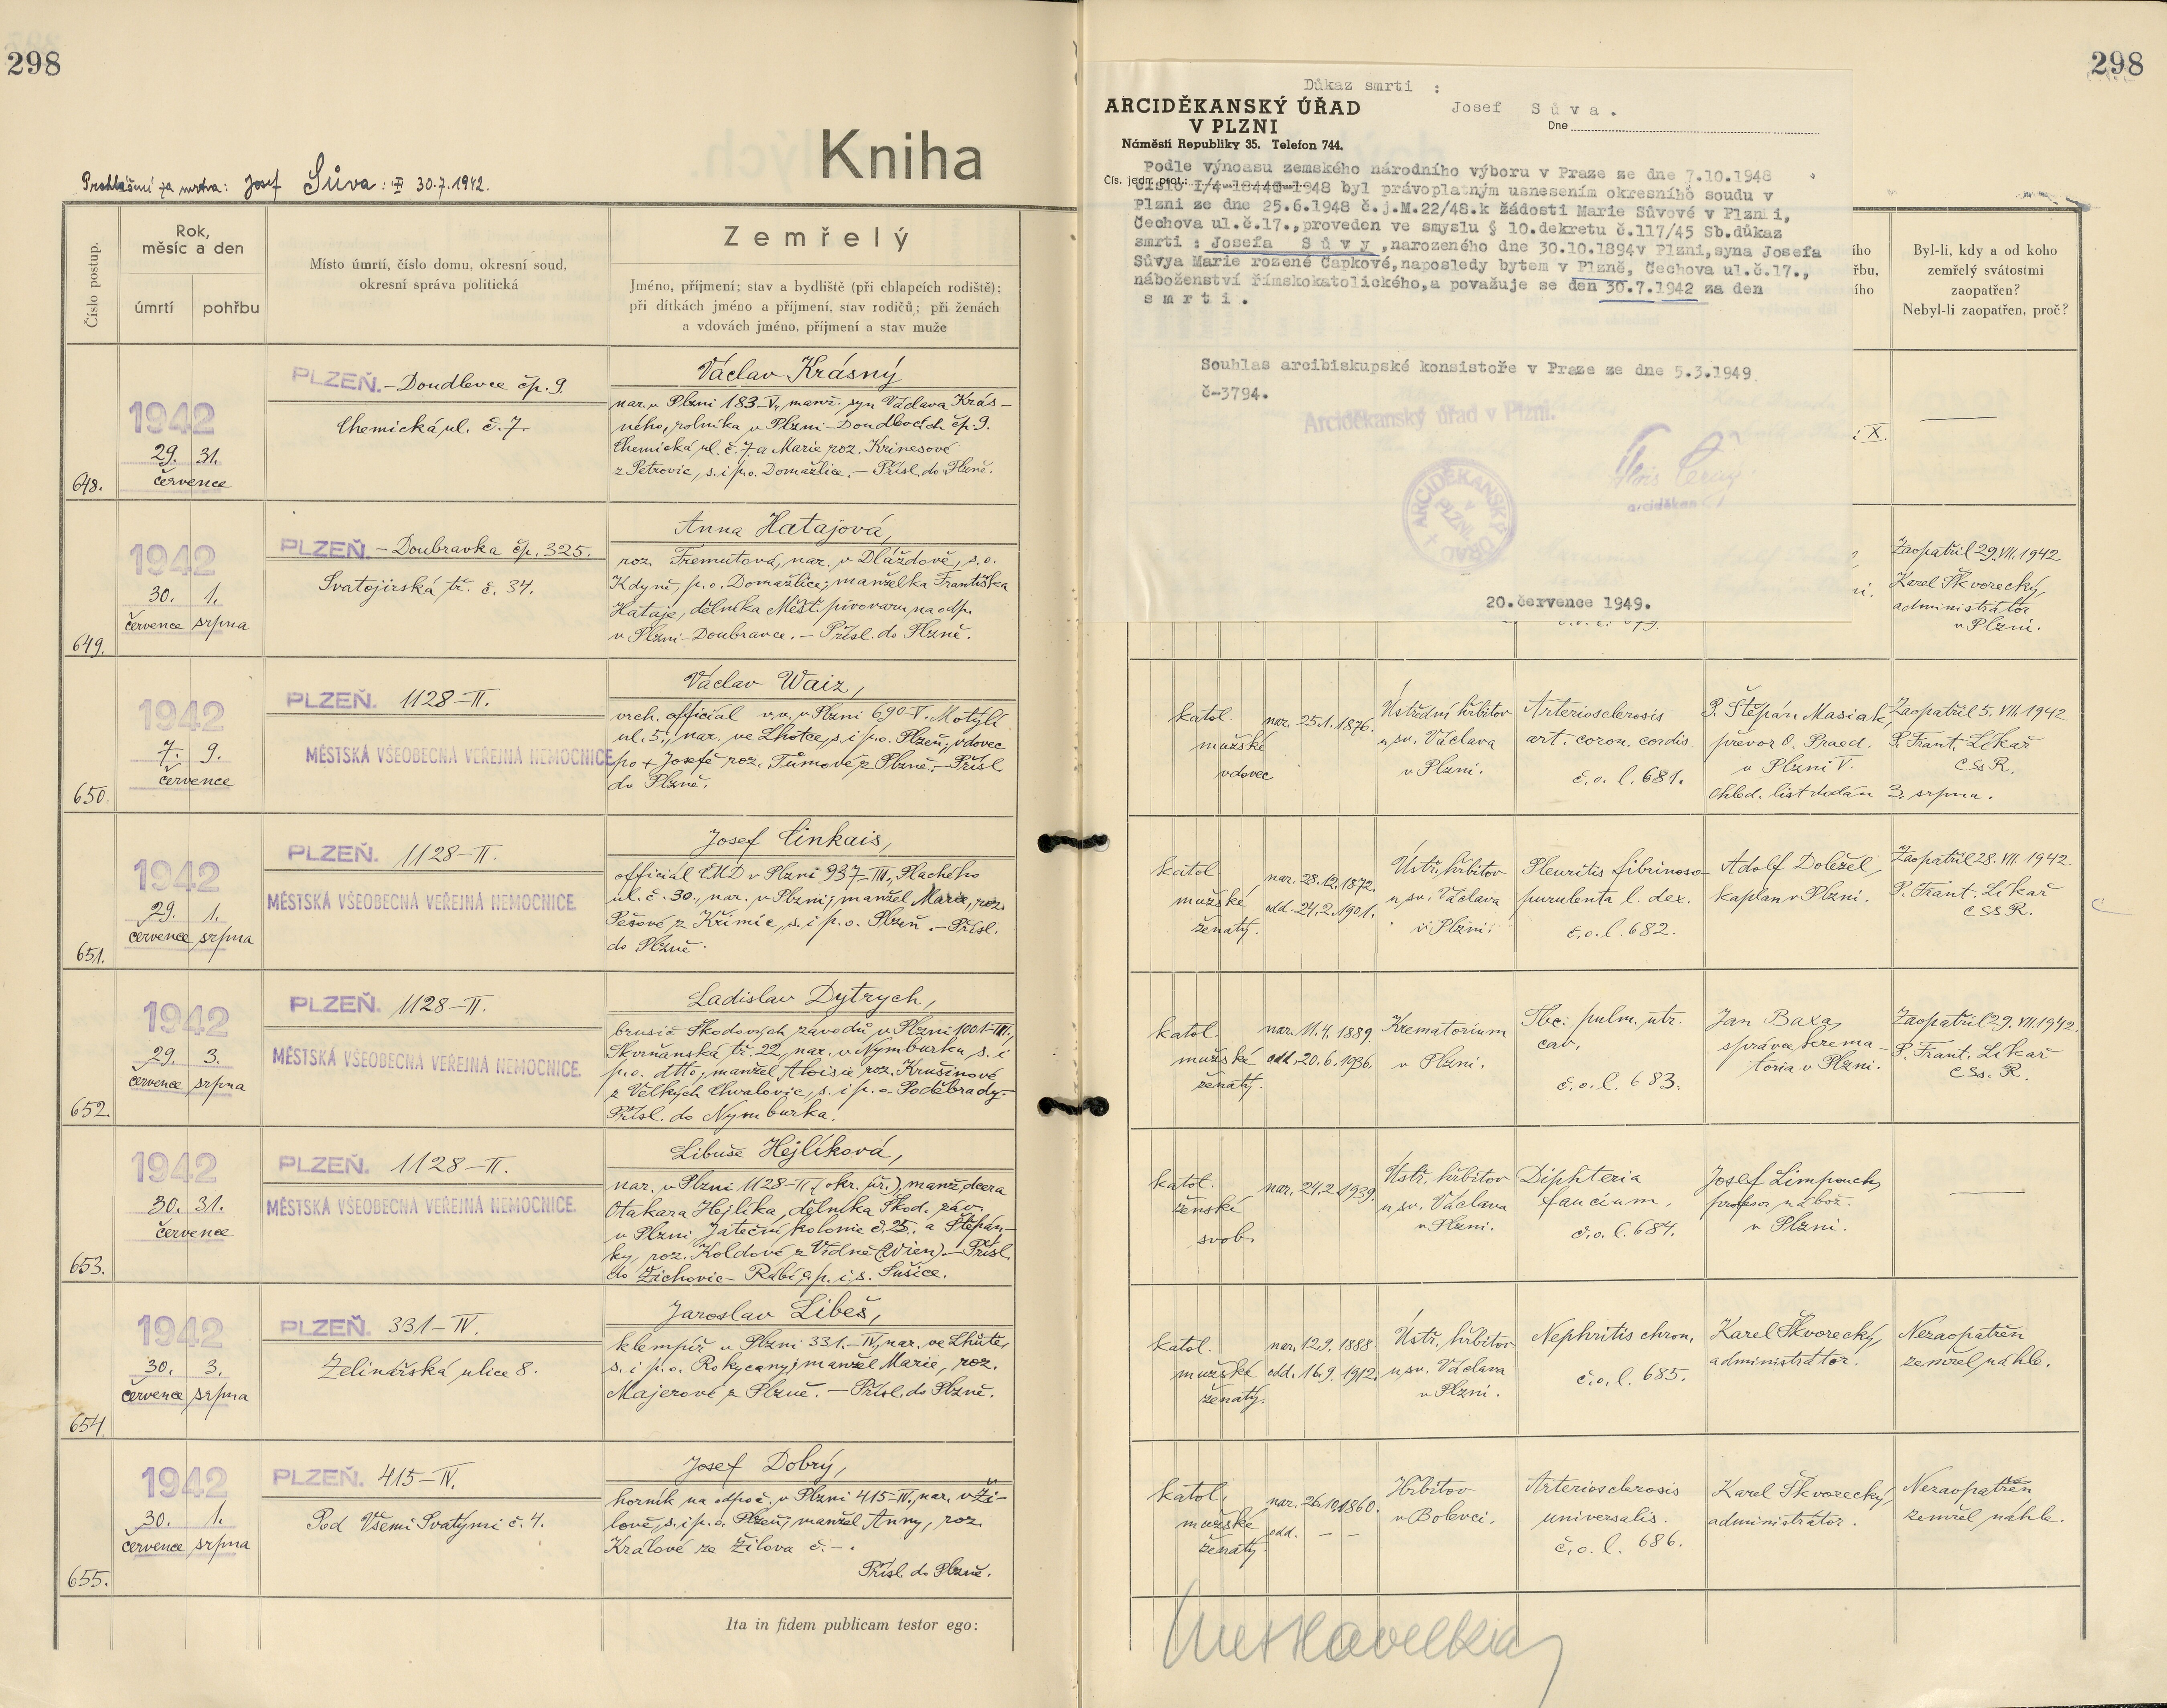 298
Kniha
Prohlášení za mrtva: Josef Sůva: 30.7.1942.
Číslo postup.
Rok,
měsíc a den
úmrtí
pohřbu
Místo úmrtí, číslo domu, okresní soud,
okresní správa politická
Zemřelý
Jméno, příjmení; stav a bydliště (při chlapcích rodiště);
při dítkách jméno a příjmení, stav rodičů; při ženách
a vdovách jméno, příjmení a stav muže
648.
1942
29. 31.
července
PLZEŇ. – Doudlevce čp. 9.
Chemická ul. č. 7.
Václav Krásný
nar. v Plzni 183–V., manž. syn Václava Krás–
ného, rolníka v Plzni–Doudlevcích čp. 9.
Chemická ul. č. 7. a Marie roz. Krinesové
z Petrovic, s. i p. o. Domažlice. – Přísl. do Plzně.
649.
1942
30. 1.
července srpna
PLZEŇ. – Doubravka čp. 325.
Svatojirská tř. č. 34.
Anna Hatajová,
roz. Tremutová, nar. v Dláždově, s. o.
Kdyně, p. o. Domažlice; manželka Františka
Hataje, dělníka Měšť. pivovaru na odp.
v Plzni–Doubravce. – Přísl. do Plzně.
650.
1942
7. 9.
července
PLZEŇ. 1128–II.
MĚSTSKÁ VŠEOBECNÁ VEŘEJNÁ NEMOCNICE
Václav Waiz,
vrch. official v. v. v Plzni 690–V. Motýlí
ul. 5., nar. ve Lhotce, s. i p. o. Plzeň; vdovec
po + Josefě roz. Tůmové z Plzně. – Přísl.
do Plzně.
651.
1942
29. 1.
července srpna
PLZEŇ. 1128–II.
MĚSTSKÁ VŠEOBECNÁ VEŘEJNÁ NEMOCNICE.
Josef Činkais,
officiál ČMD v Plzni 937–III., Plachého
ul. č. 30., nar. v Plzni; manžel Marie, roz.
Pešové z Křimic, s. i p. o. Plzeň. – Přísl.
do Plzně.
652.
1942
29. 3.
července srpna
PLZEŇ. 1128–II.
MĚSTSKÁ VŠEOBECNÁ VEŘEJNÁ NEMOCNICE.
Ladislav Dytrych,
brusič Škodových závodů v Plzni 1001–III.,
Skvrňanská tř. 22., nar. v Nymburku, s. i
p. o. dtto; manžel Aloisie roz. Krušinové
z Velkých Chvalovic, s. i p. o. Poděbrady.–
Přísl. do Nymburka.
653.
1942
30. 31.
července
PLZEŇ. 1128–II.
MĚSTSKÁ VŠEOBECNÁ VEŘEJNÁ NEMOCNICE.
Libuše Hejlíková,
nar. v Plzni 1128–II (okr. úř.), manž. dcera
Otakara Hejlíka, dělníka Škod. záv.
v Plzni, Jateční kolonie č. 25., a Štěpán–
ky, roz. Koldové z Vídně (Wien). – Přísl.
do Žichovic – Rábí, p. i s. Sušice.
654.
1942
30. 3.
července srpna
PLZEŇ. 331–IV.
Želinářská ulice 8.
Jaroslav Libeš,
klempíř v Plzni 331.–IV., nar. ve Lhůtě,
s. i p. o. Rokycany; manžel Marie, roz.
Majerové z Plzně. – Přísl. do Plzně.
655.
1942
30. 1.
července srpna
PLZEŇ. 415–IV.
Pod Všemi Svatými č. 4.
Josef Dobrý,
horník na odpoč. v Plzni 415–IV., nar. v Ži–
lově, s. i p. o. Plzeň; manžel Anny, roz.
Králové ze Žilova č. –.
Přísl. do Plzně.
Ita in fidem publicam testor ego:
298
Důkaz smrti :
ARCIDĚKANSKÝ ÚŘAD
V PLZNI
Náměstí Republiky 35. Telefon 744.
Josef Sůva.
Dne
Čís. jedn. prot.:
Podle výnosu zemského národního výboru v Praze ze dne 7.10.1948
číslo I/4-18440-1948 byl právoplatným usnesením okresního soudu v
Plzni ze dne 25.6.1948 č.j.M.22/48.k žádosti Marie Sůvové v Plzni,
Čechova ul.č.17.,proveden ve smyslu § 10.dekretu č.117/45 Sb.důkaz
smrti : Josefa Sůvy,narozeného dne 30.10.1894v Plzni,syna Josefa
Sůvya Marie rozené Čapkové,naposledy bytem v Plzně, Čechova ul.č.17.,
náboženství římskokatolického,a považuje se den 30.7.1942 za den
smrti.
Souhlas arcibiskupské konsistoře v Praze ze dne 5.3.1949.
č-3794.
Arciděkanský úřad v Plzni.
arciděkan
ARCIDĚKANSKÝ ÚŘAD V PLZNI
20.července 1949.
Byl-li, kdy a od koho
zemřelý svátostmi
zaopatřen?
Nebyl-li zaopatřen, proč?
X.
Zaopatřil 29. VII. 1942
Karel Škvorecký,
administrátor
v Plzni.
katol.
mužské
vdovec
nar. 25.1. 1876.
Ústřední hřbitov
u sv. Václava
v Plzni.
Arteriosclerosis
art. coron. cordis.
č. o. l. 681.
P. Štěpán Masiak,
převor O. Praed.
v Plzni V.
Ohled. list dodán 3. srpna.
Zaopatřil 5. VII. 1942
P. Frant. Likař
CSsR.
katol.
mužské
ženatý.
nar. 28.12. 1872.
odd. 24.2. 1901.
Ústř. hřbitov
u sv. Václava
v Plzni.
Pleuritis fibrinoso–
purulenta l. dex.
č. o. l. 682.
Adolf Doležel,
kaplan v Plzni.
Zaopatřil 28. VII. 1942.
P. Frant. Likař
CSsR.
katol.
mužské
ženatý.
nar. 11.4. 1889.
odd. 20.6. 1936.
Krematorium
v Plzni.
Tbc. pulm. utr.
cav.
č. o. l. 683.
Jan Baxa,
správce krema–
toria v Plzni.
Zaopatřil 29. VII. 1942.
P. Frant. Likař
CSs.R.
katol.
ženské
svob.
nar. 24.2. 1939.
Ústř. hřbitov
u sv. Václava
v Plzni.
Diphteria
faucium.
č. o. l. 684.
Josef Limpouch,
profesor nábož.
v Plzni.
katol.
mužské
ženatý.
nar. 12.9. 1888.
odd. 16.9. 1912.
Ústř. hřbitov
u sv. Václava
v Plzni.
Nephritis chron.
č. o. l. 685.
Karel Škvorecký,
administrátor.
Nezaopatřen
zemřel náhle.
katol.
mužské
ženatý.
nar. 26.10.1860.
odd. – –
Hřbitov
v Bolevci.
Arteriosclerosis
universalis.
č. o. l. 686.
Karel Škvorecký,
administrátor.
Nezaopatřen
zemřel náhle.